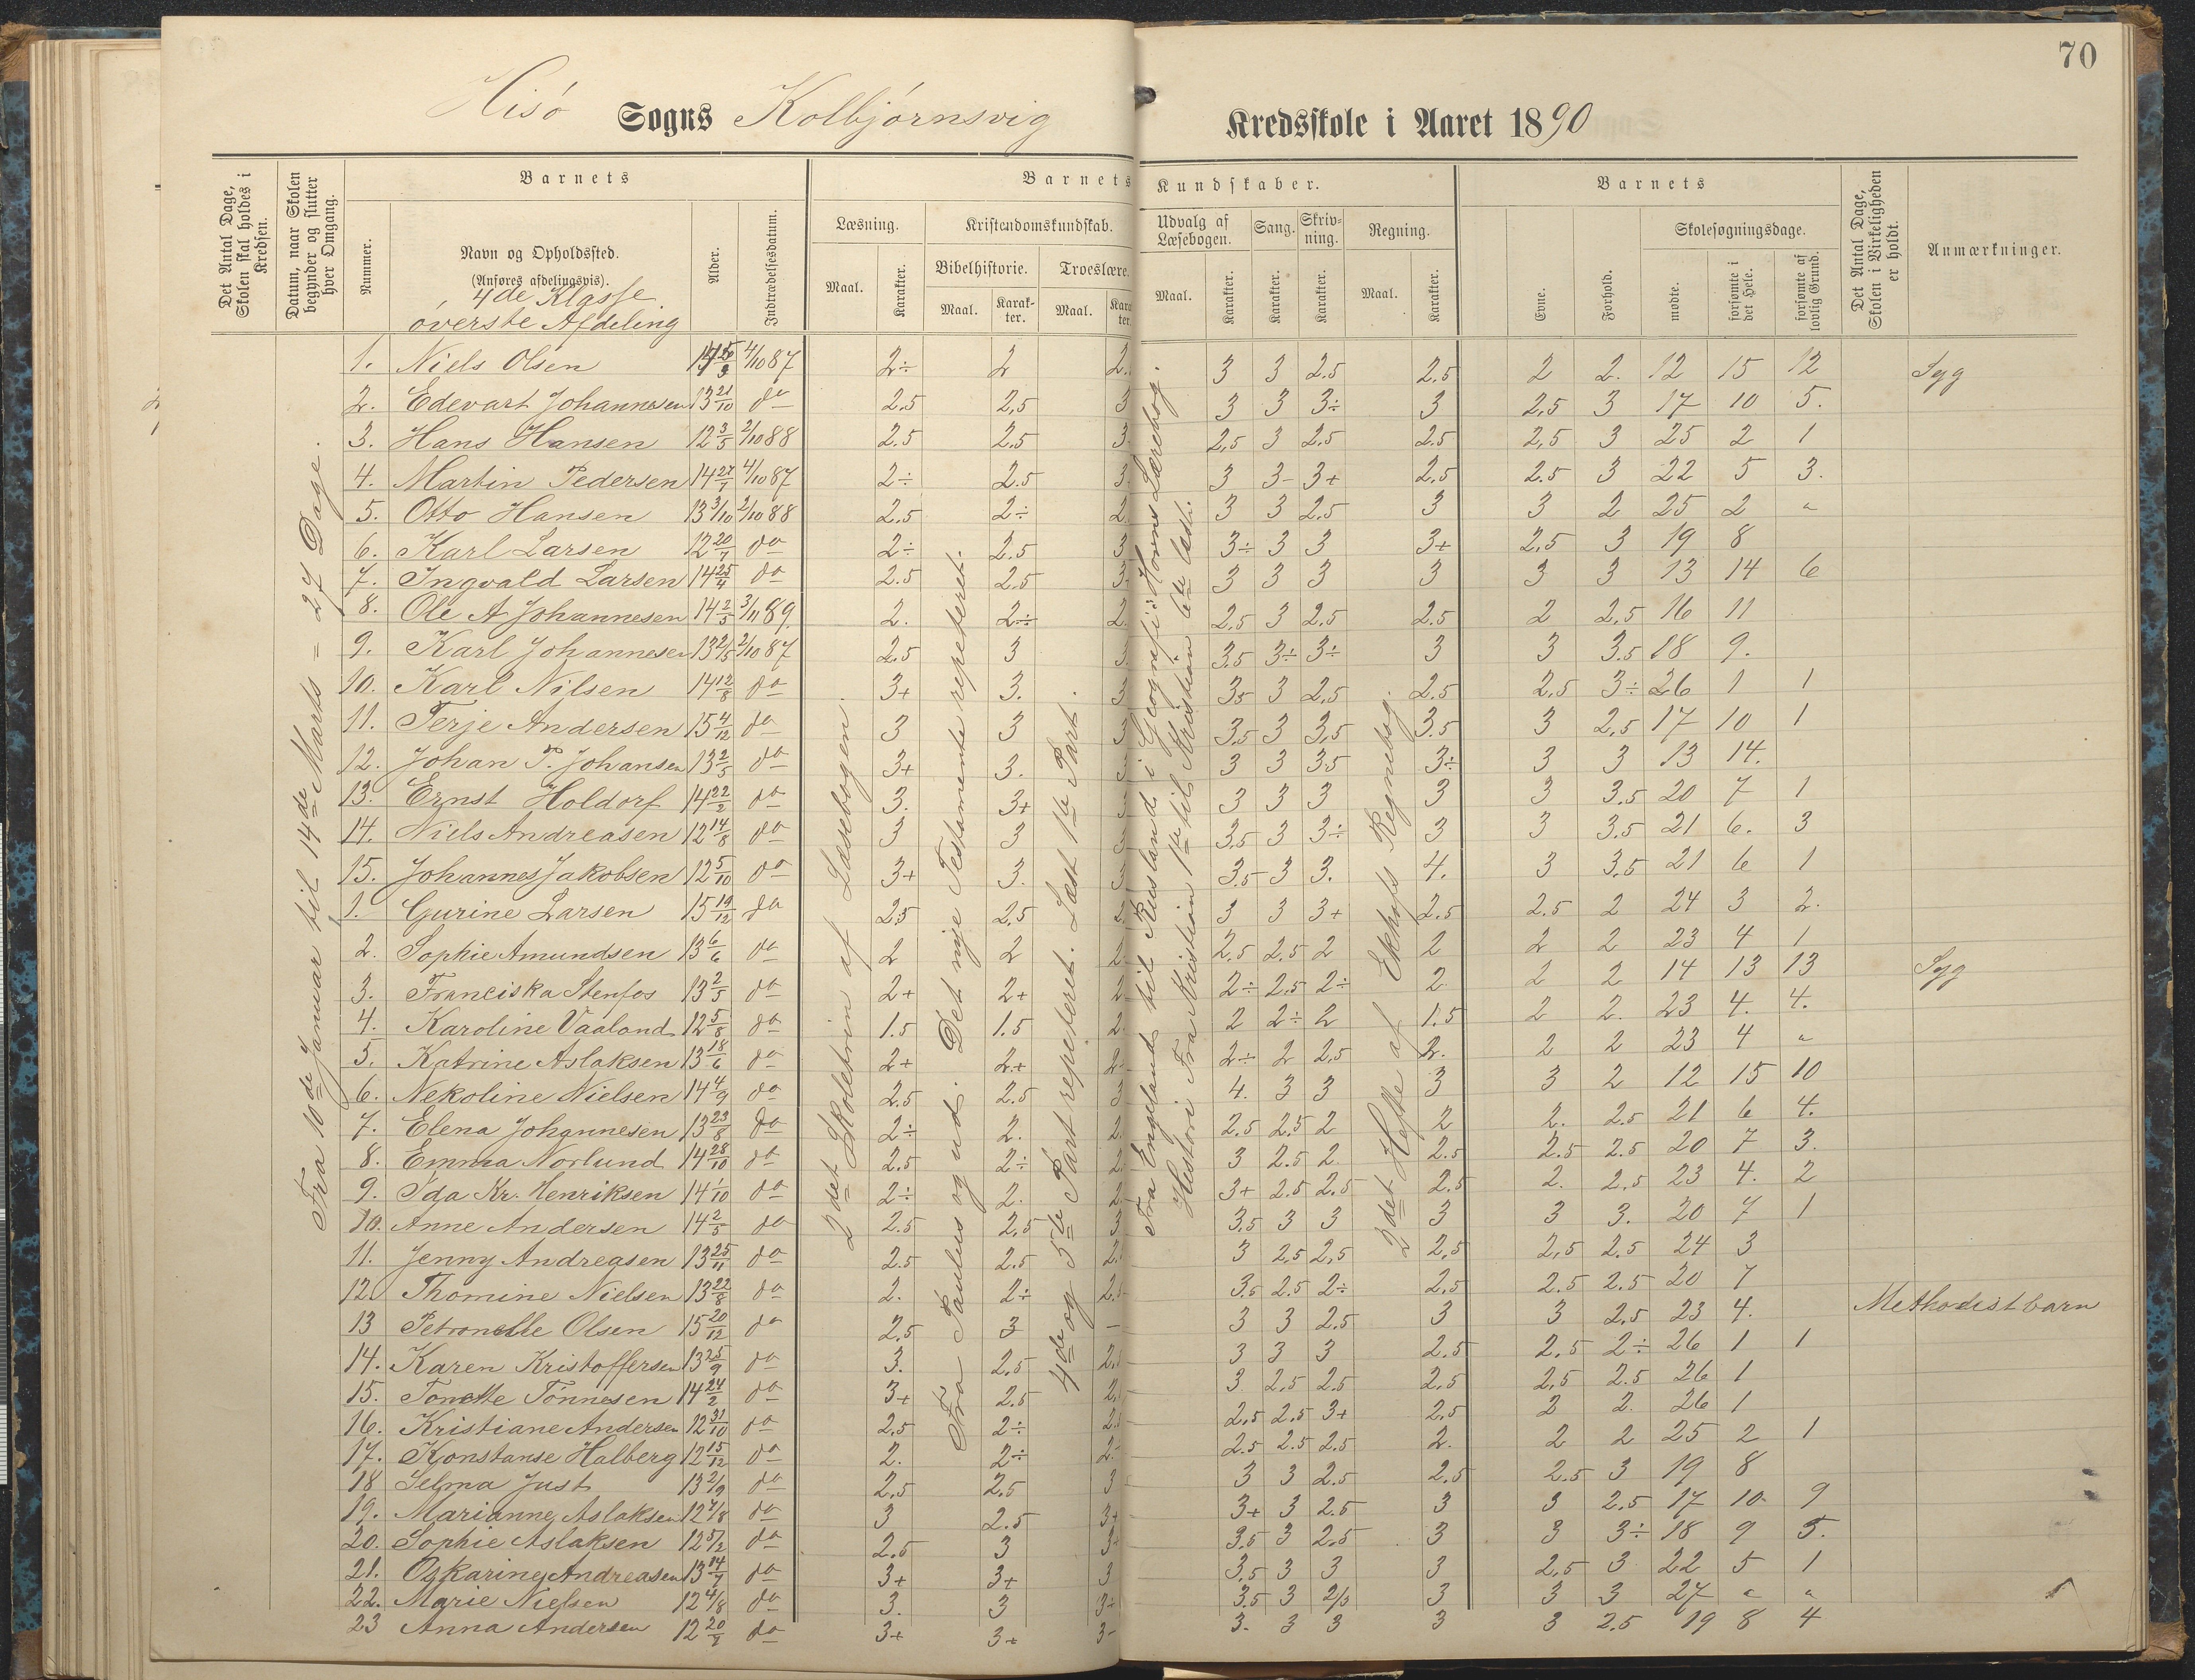 70
Hisö Sogns Kolbjörnsvig Kredsskole i Aaret 1890
Det Antal Dage, Skolen skal holdes i Kredsen.
Datum, naar Skolen begynder og slutter hver Omgang.
Barnets
Nummer.
Navn og Opholdssted.
(Anføres afdelingsvis).
4de Klasse
överste Afdeling
Alder.
Indtrædelsesdatum.
Barnets Kundskaber.
Læsning.
Maal.
Karakter.
Kristendomskundskab.
Bibelhistorie.
Maal.
Karakter.
Troeslære.
Maal.
Karakter.
Udvalg af Læsebogen.
Maal.
Karakter.
Sang.
Karakter.
Skrivning.
Karakter.
Regning.
Maal.
Karakter.
Barnets
Evne.
Forhold.
Skolesøgningsdage.
mødte.
forsømte i det Hele.
forsømte af lovlig Grund.
Det Antal Dage, Skolen i Virkeligheden er holdt.
Anmærkninger.
Fra 10de Januar til 14de Marts = 27 Dage.
2det Skoletrin af Læsebogen.
Fra Paulus og ud. Det nye Testamente repeteret.
4de og 5te Part repederet. Læst 1te Part.
Fra Engeland til Rusland i Geografi: Horns Lærebog.
Historie Fra Kristian 1te til Kristian 6te læst.
2det Hefte af Ekhofs Regnebog.
1. Niels Olsen 4/10 87 2÷ 2 2. 3 3 2.5 2.5 2 2. 12 15 12 Syg
2. Edevart Johannesen 13 21/10 do 2.5 2,5 3 3 3 3÷ 3 2,5 3 17 10 5.
3. Hans Hansen 12 3/5 2/10 88 2.5 2.5 3. 2,5 3 2,5 2.5 2,5 3 25 2 1
4. Martin Pedersen 14 27/7 4/10 87 2÷ 2.5 3. 3 3- 3+ 2,5 2.5 3 22 5 3.
5. Otto Hansen 13 3/10 2/10 88 2.5 2÷ 2. 3 3 2.5 3 3 2 25 2 "
6. Karl Larsen 12 20/7 do 2÷ 2.5 3 3÷ 3 3 3+ 2,5 3 19 8
7. Ingvald Larsen 14 25/4 do 2.5 2.5 3. 3 3 3 3 3 3 13 14 6
8. Ole A Johannesen 14 2/5 3/11 89. 2. 2÷ 2. 2.5 3 2,5 2.5 2 2,5 16 11
9. Karl Johannesen 13 2/5 2/10 87 2,5 3 3. 3.5 3÷ 3÷ 3 3 3.5 18 9.
10. Karl Nilsen 14 12/8 do 3+ 3. 3 3.5 3 2,5 2.5 2,5 3÷ 26 1 1
11. Terje Andersen 15 4/12 do 3 3 3 3,5 3 3,5 3.5 3 2,5 17 10 1
12. Johan P. Johansen 13 2/5 do 3+ 3. 3 3 3 3.5 3÷ 3 3 13 14.
13. Ernst Holdorf 14 22/2 do 3. 3+ 3 3 3 3 3 3 3.5 20 7 1
14. Niels Andreasen 12 14/8 do 3 3 3 3,5 3 3÷ 3 3 3.5 21 6. 3
15. Johannes Jakobsen 12 5/10 do 3+ 3. 3 3.5 3 3. 4. 3 3.5 21 6 1
1. Gurine Larsen 15 19/12 do 2.5 2,5 2. 3 3 3+ 2.5 2.5 2 24 3 2.
2. Sophie Amundsen 13 6/6 do 2 2 2. 2,5 2.5 2 2 2 2 23 4 1
3. Franciska Stenfos 13 2/5 do 2+ 2+ 2 2÷ 2.5 2÷ 2. 2 2 14 13 13 Syg
4. Karoline Vaaland 12 5/8 do 1.5 1.5 2. 2 2÷ 2 1.5 2 2. 23 4. 4.
5. Katrine Aslaksen 13 18/6 do 2+ 2+ 2. 2÷ 2 2,5 2. 2 2 23 4 "
6. Nekoline Nielsen 14 4/9 do 2.5 2.5 3 4. 3 3 3 3 2 12 15 10
7. Elena Johannesen 13 23/8 do 2÷ 2. 2. 2.5 2.5 2 2 2. 2.5 21 6 4.
8. Emma Norlund 14 28/10 do 2.5 2÷ 2. 3 2.5 2. 2.5 2.5 2.5 20 7 3.
9. Ida Kr. Henriksen 14 1/10 do 2÷ 2. 2. 3+ 2.5 2.5 2.5 2. 2.5 23 4. 2
10. Anne Andersen 14 2/5 do 2.5 2,5 3 3.5 3 3 3 3 3. 20 7 1
11. Jenny Andreasen 13 25/11 do 2.5 2.5 2. 3 2,5 2,5 2,5 2,5 2.5 24 3
12. Thomine Nielsen 13 22/8 do 2. 2÷ 2.5 3.5 2.5 2÷ 2,5 2.5 2.5 20 7
13 Petronelle Olsen 15 20/12 do 2,5 3 — 3 3 2.5 3 3 2.5 23 4. Methodistbarn
14. Karen Kristoffersen 13 25/9 do 3. 2,5 2,5 3 3 3 2.5 2,5 2÷ 26 1 1
15. Tonette Tönnesen 14 24/2 do 3+ 2.5 2, 3 2,5 2.5 2,5 2,5 2.5 26 1
16. Kristiane Andersen 12 31/10 do 2,5 2÷ 2.5 2,5 2.5 3+ 2,5 2 2. 26 1
17. Konstanse Halberg 12 15/12 do 2. 2÷ 2÷ 2.5 2.5 2.5 2. 2 2 25 2 1
18 Selma Just 13 2/9 do 2,5 2,5 3 3 3 2.5 2.5 2.5 3 19 8
19. Marianne Aslaksen 12 7/8 do 3 2.5 3+ 3+ 3 2.5 3 3 2.5 17 10 9
20. Sophie Aslaksen 12 5/2 do 2.5 3 3÷ 3,5 3 2,5 3 3 3÷ 18 9 5.
21. Oskarine Andreasen 13 14/7 do 3+ 3+ 3 3,5 3 3 3 2,5 3 22 5 1
22. Marie Nielsen 12 4/8 do 3. 3 3÷ 3.5 3 2/3 3 3 3 27 " "
23 Anna Andersen 12 20/8 do 3+ 3+ 3- 3. 3 3 3 3 2.5 19 8 4